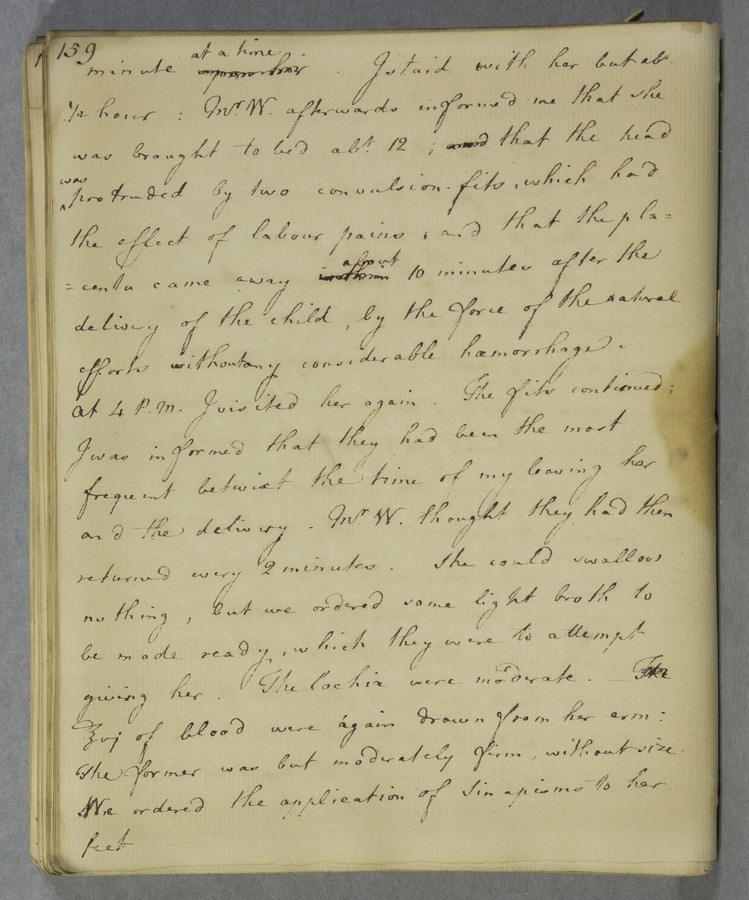 159
at a time
minute . I staid with her but abt
1/2 hour : Mr W. afterwards informed me that she
was brought to bed abt 12 ; and that the head
was
^protruded by two convulsion-fits, which had
the effect of labour pains ; and that the pla=
about
=centa came away within 10 minutes after the
delivery of the child, by the force of the natural
efforts without any considerable hæmorrhage.
At 4 P.M. I visited her again. The fits continued:
I was informed that they had been the most
frequent betwixt the time of my leaving her
and the delivery. Mr W. thought they had then
returned every 2 minutes. She could swallow
nothing, but we ordered some light broth to
be made ready, which they were to attempt
giving her. The lochia were moderate.
℥vj of blood were again drawn from her arm:
The former was but moderately firm, without size.
We ordered the application of Sinapisms to her
feet